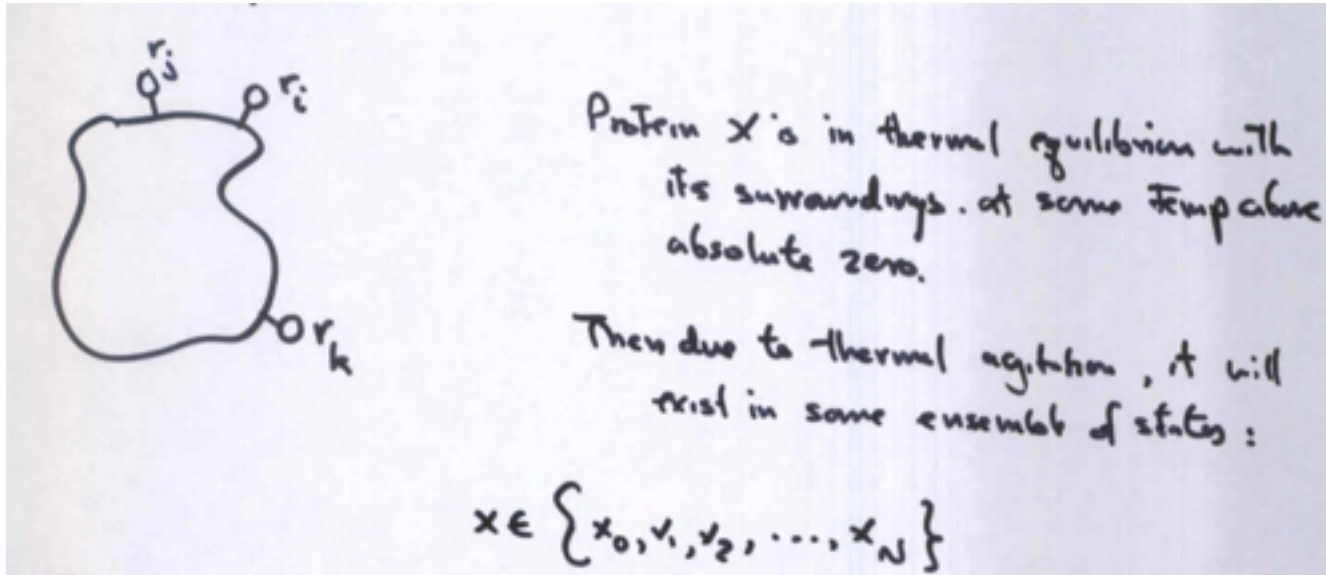 r_j
r_i
r_k
Protein X is in thermal equilibrium with
its surroundings. at some Temp above
absolute zero.
Then due to thermal agitation, it will
exist in some ensemble of states:
x ∈ {x_0, x_1, x_2, ..., x_N}